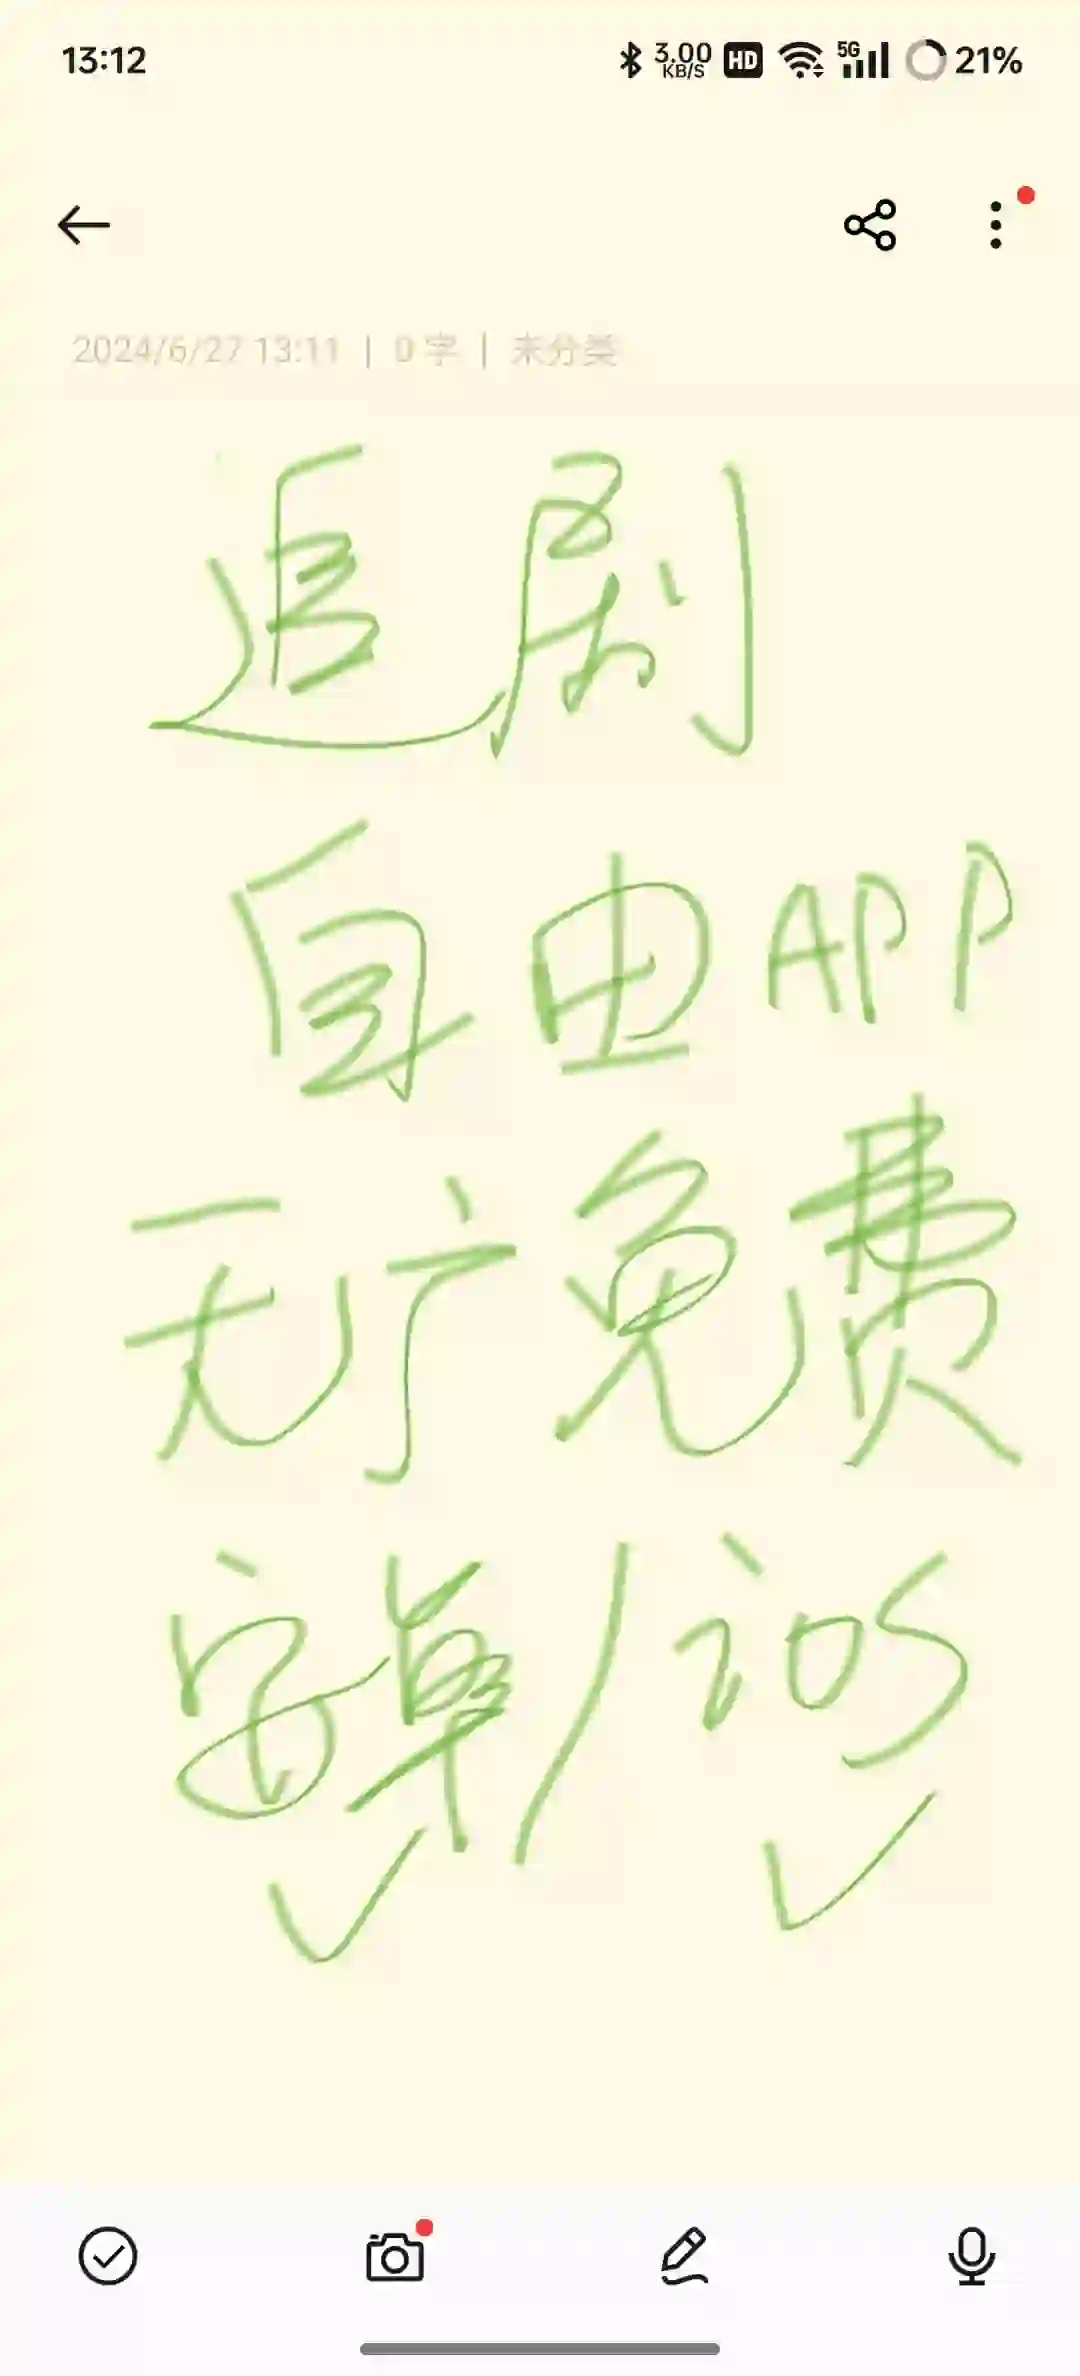 13:12 3.00 KB/S HD 5G 21%
2024/6/27 13:11 | 0 字 | 未分类
追剧
自由APP
无广免费
安卓/ios